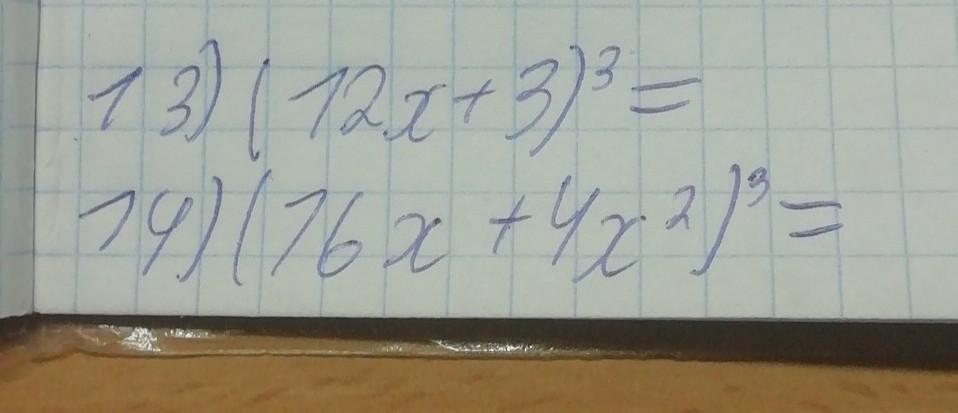 13) (12x+3)³=
14) (16x+4x²)³=